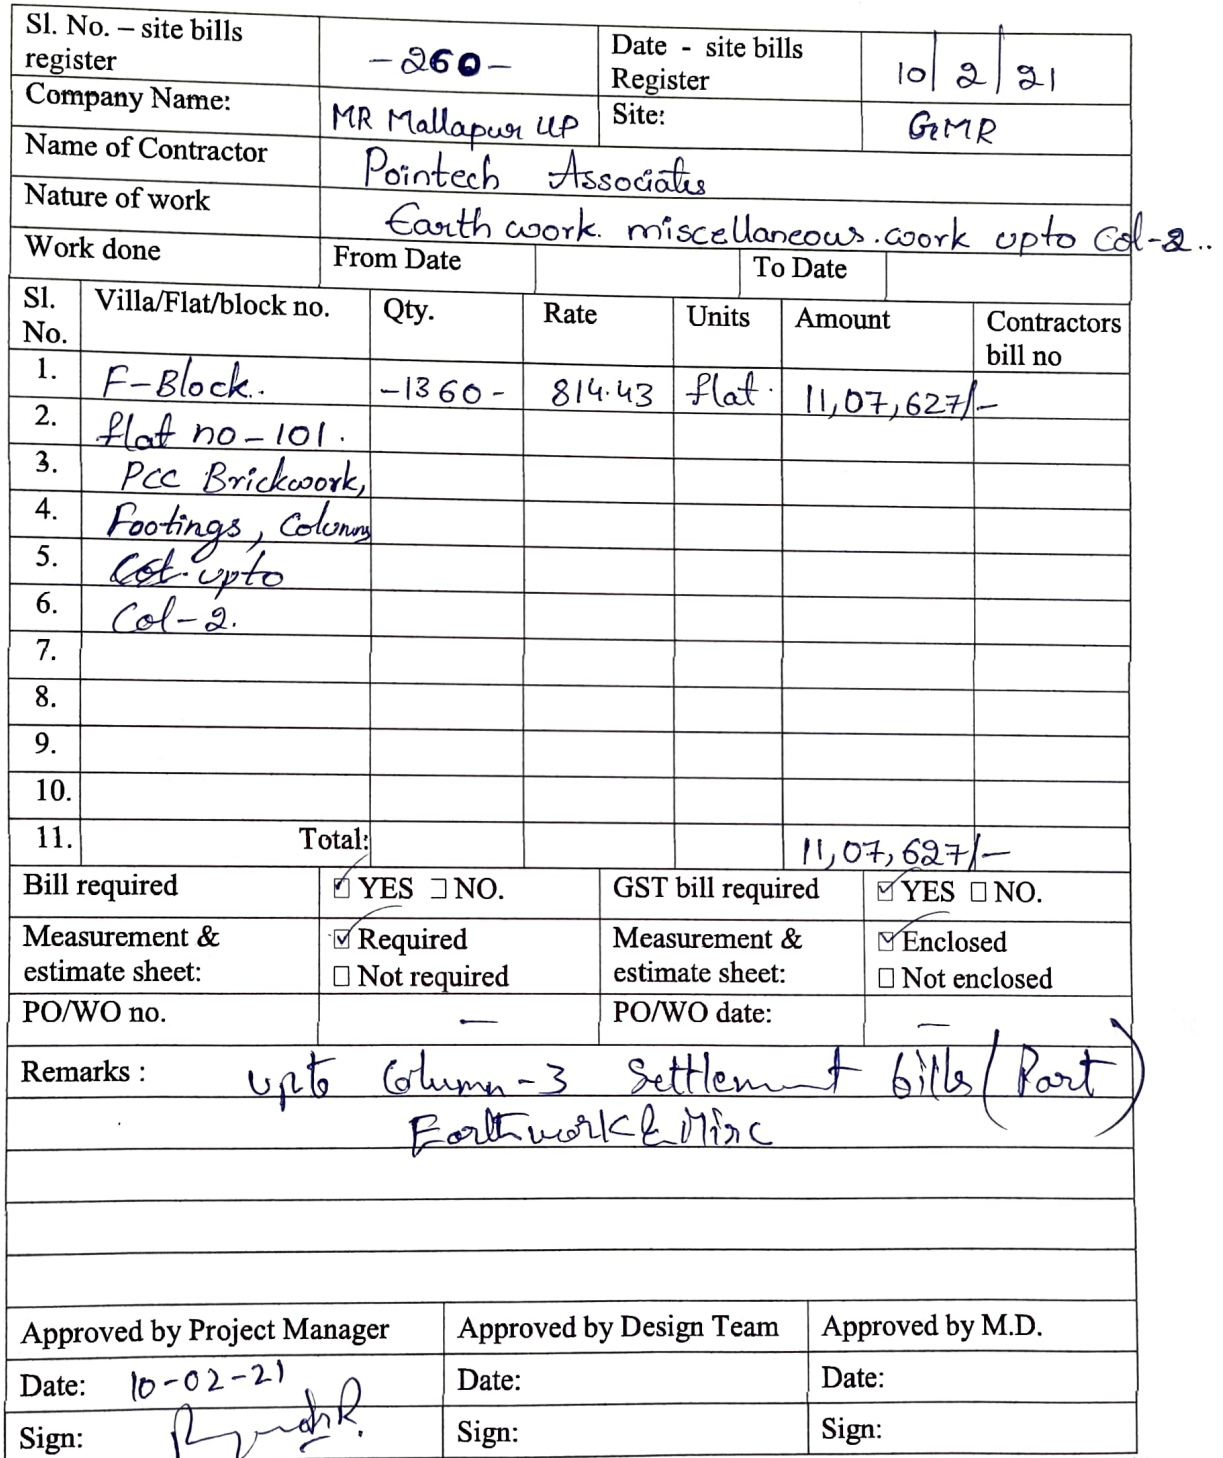 Sl. No. – site bills register -260- Date - site bills Register 10/2/21
Company Name: MR Mallapur LLP Site: GMR
Name of Contractor Pointech Associates
Nature of work Earth work. miscellaneous.work upto Col-2..
Work done From Date To Date
Sl. No. Villa/Flat/block no. Qty. Rate Units Amount Contractors bill no
1. F-Block.. -1360- 814.43 flat. 11,07,627/-
2. flat no-101.
3. PCC Brickwork,
4. Footings, Columns
5. Col. upto
6. Col-2.
7.
8.
9.
10.
11. Total: 11,07,627/-
Bill required ☑ YES ☐ NO. GST bill required ☑ YES ☐ NO.
Measurement & estimate sheet: ☑ Required ☐ Not required Measurement & estimate sheet: ☑ Enclosed ☐ Not enclosed
PO/WO no. — PO/WO date: —
Remarks : upto Column-3 Settlement bills (Part)
Earthwork & Misc
Approved by Project Manager Approved by Design Team Approved by M.D.
Date: 10-02-21 Date: Date:
Sign: Sign: Sign: